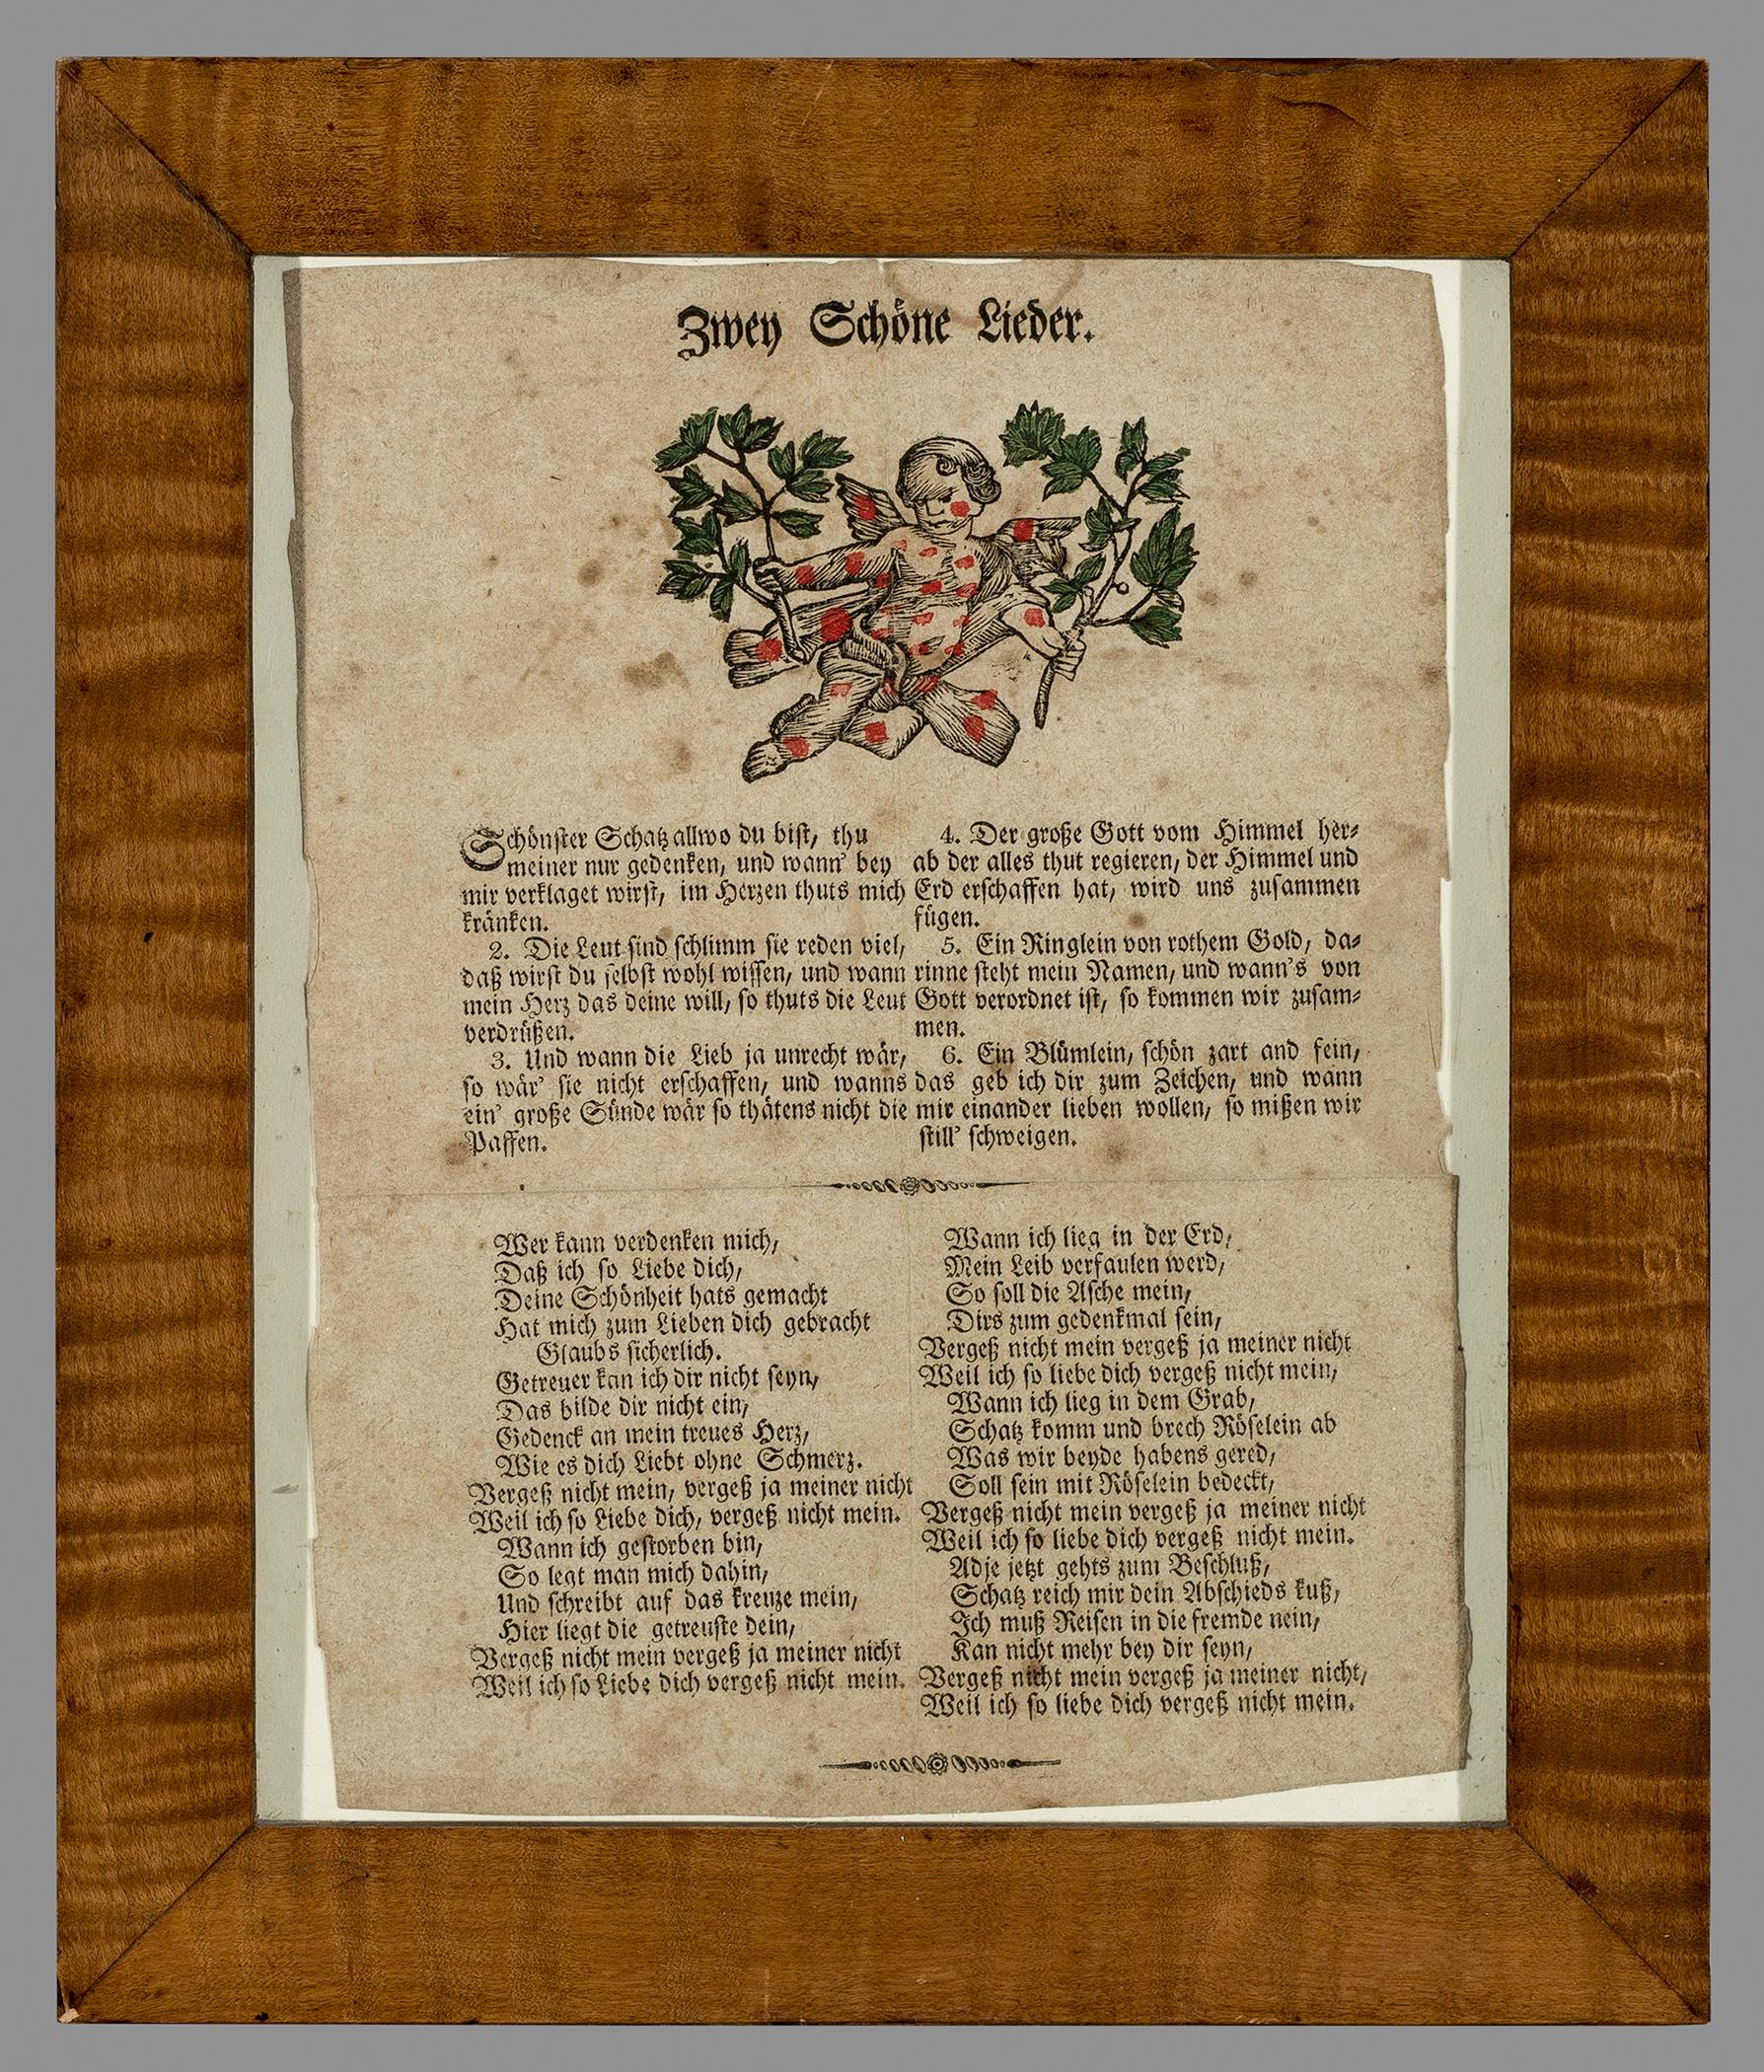 Zwey Schöne Lieder.
Schönster Schatz allwo du bist, thu
meiner nur gedenken, und wann' bey
mir verklaget wirst, im Herzen thuts mich
kränken.
2. Die Leut sind schlimm sie reden viel,
daß wirst du selbst wohl wissen, und wann
mein Herz das deine will, so thuts die Leut
verdrüßen.
3. Und wann die Lieb ja unrecht wär,
so wär' sie nicht erschaffen, und wanns
ein' große Sünde wär so thätens nicht die
Paffen.
4. Der große Gott vom Himmel her-
ab der alles thut regieren, der Himmel und
Erd erschaffen hat, wird uns zusammen
fügen.
5. Ein Ringlein von rothem Gold, da-
rinne steht mein Namen, und wann's von
Gott verordnet ist, so kommen wir zusam-
men.
6. Ein Blümlein, schön zart and fein,
das geb ich dir zum Zeichen, und wann
mir einander lieben wollen, so mißen wir
still' schweigen.
Wer kann verdenken mich,
Daß ich so Liebe dich,
Deine Schönheit hats gemacht
Hat mich zum Lieben dich gebracht
Glaubs sicherlich.
Getreuer kan ich dir nicht seyn,
Das bilde dir nicht ein,
Gedenck an mein treues Herz,
Wie es dich Liebt ohne Schmerz.
Vergeß nicht mein, vergeß ja meiner nicht
Weil ich so Liebe dich, vergeß nicht mein.
Wann ich gestorben bin,
So legt man mich dahin,
Und schreibt auf das kreuze mein,
Hier liegt die getreuste dein,
Vergeß nicht mein vergeß ja meiner nicht
Weil ich so Liebe dich vergeß nicht mein.
Wann ich lieg in der Erd,
Mein Leib verfaulen werd,
So soll die Asche mein,
Dirs zum gedenkmal sein,
Vergeß nicht mein vergeß ja meiner nicht
Weil ich so liebe dich vergeß nicht mein,
Wann ich lieg in dem Grab,
Schatz komm und brech Röselein ab
Was wir beyde habens gered,
Soll sein mit Röselein bedeckt,
Vergeß nicht mein vergeß ja meiner nicht
Weil ich so liebe dich vergeß nicht mein.
Adje jetzt gehts zum Beschluß,
Schatz reich mir dein Abschieds kuß,
Ich muß Reisen in die fremde nein,
Kan nicht mehr bey dir seyn,
Vergeß nicht mein vergeß ja meiner nicht,
Weil ich so liebe dich vergeß nicht mein.